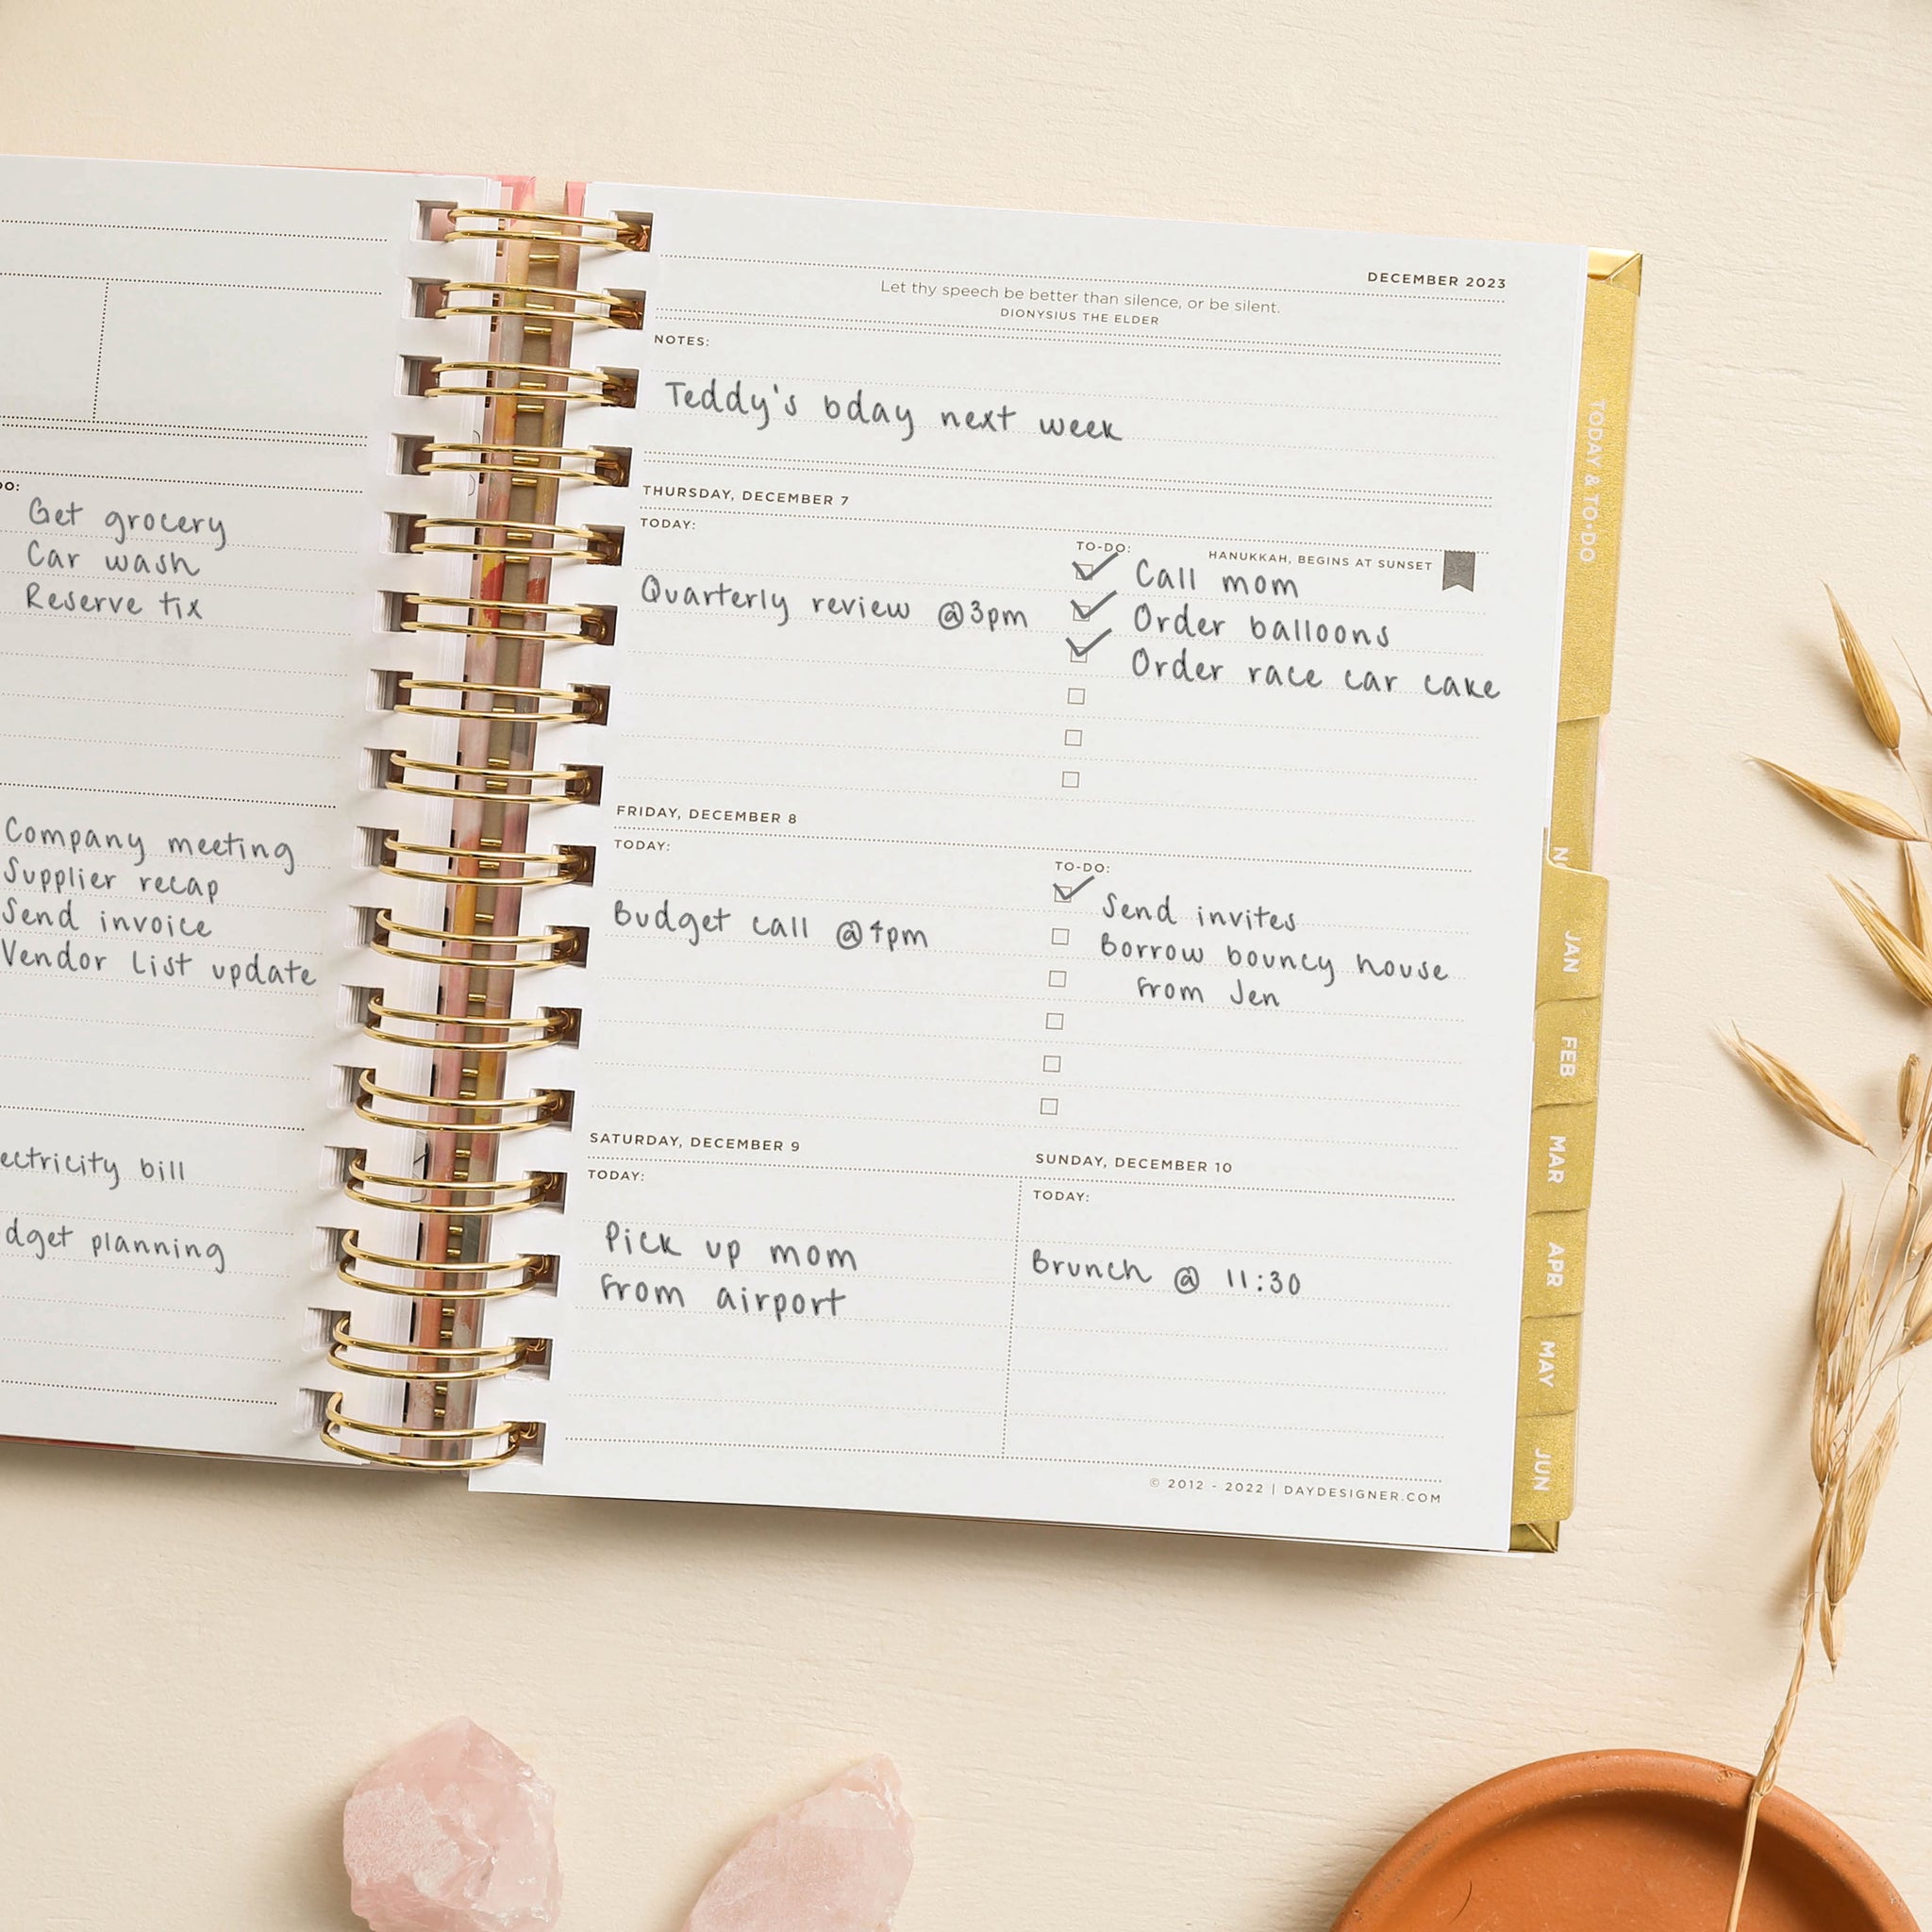 DO:
Get grocery
Car wash
Reserve tix
Company meeting
Supplier recap
Send invoice
Vendor list update
ectricity bill
dget planning
DECEMBER 2023
Let thy speech be better than silence, or be silent.
DIONYSIUS THE ELDER
NOTES:
Teddy's bday next week
THURSDAY, DECEMBER 7
TODAY:
Quarterly review @3pm
TO-DO:
HANUKKAH, BEGINS AT SUNSET
Call mom
Order balloons
Order race car cake
FRIDAY, DECEMBER 8
TODAY:
Budget call @4pm
TO-DO:
Send invites
Borrow bouncy house
from Jen
SATURDAY, DECEMBER 9
TODAY:
Pick up mom
from airport
SUNDAY, DECEMBER 10
TODAY:
Brunch @ 11:30
© 2012 - 2022 | DAYDESIGNER.COM
TODAY & TO•DO
JAN
FEB
MAR
APR
MAY
JUN